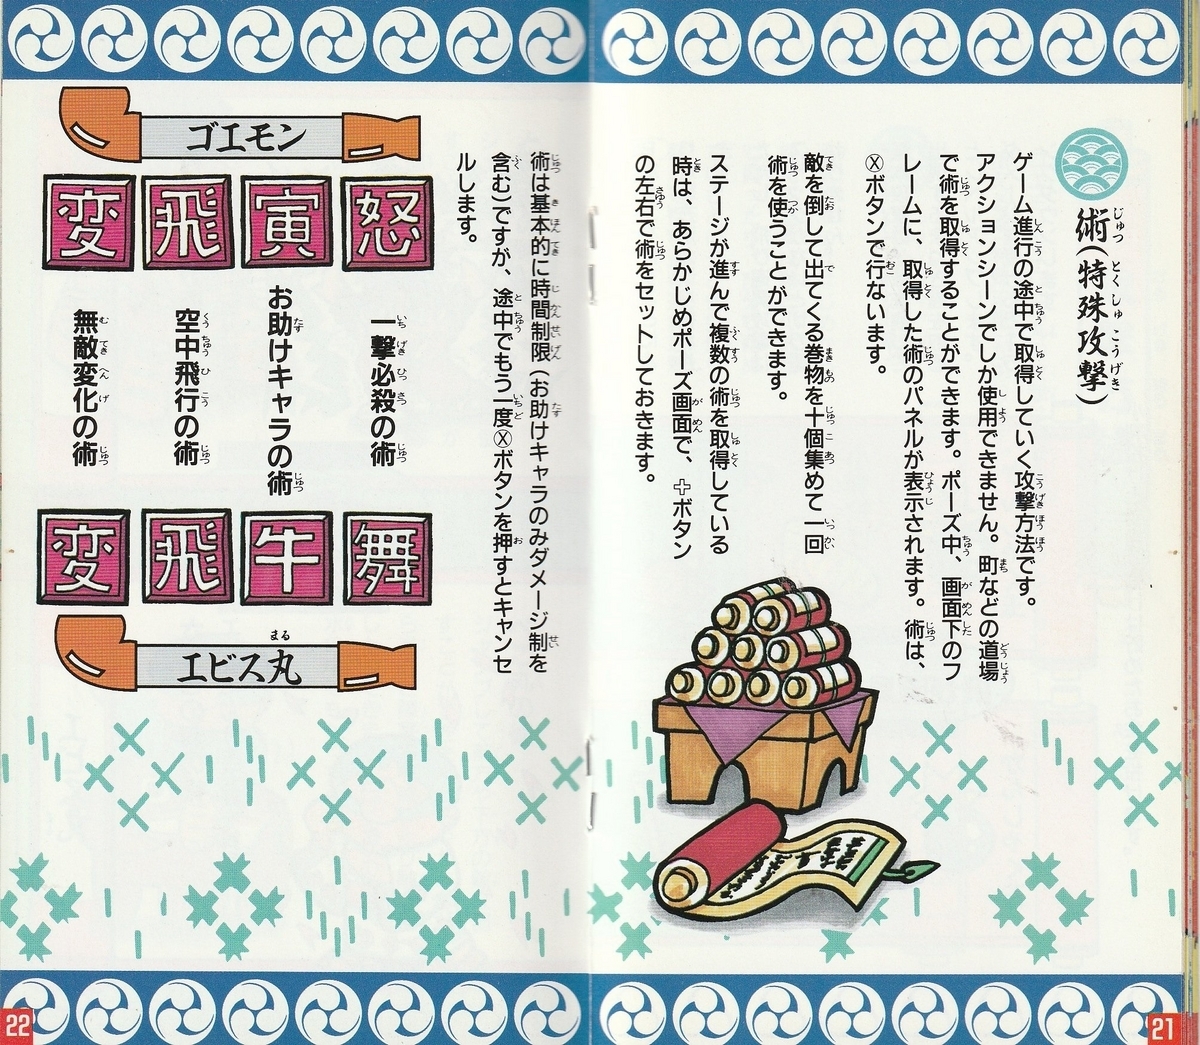 術(特殊攻撃)
ゲーム進行の途中で取得していく攻撃方法です。
アクションシーンでしか使用できません。町などの道場
で術を取得することができます。ポーズ中、画面下のフ
レームに、取得した術のパネルが表示されます。術は、
Ⓧボタンで行ないます。
敵を倒して出てくる巻物を十個集めて一回
術を使うことができます。
ステージが進んで複数の術を取得している
時は、あらかじめポーズ画面で、✚ボタン
の左右で術をセットしておきます。
21
術は基本的に時間制限(お助けキャラのみダメージ制を
含む)ですが、途中でもう一度Ⓧボタンを押すとキャンセ
ルします。
ゴエモン
怒
寅
飛
変
一撃必殺の術
お助けキャラの術
空中飛行の術
無敵変化の術
舞
牛
飛
変
エビス丸
22